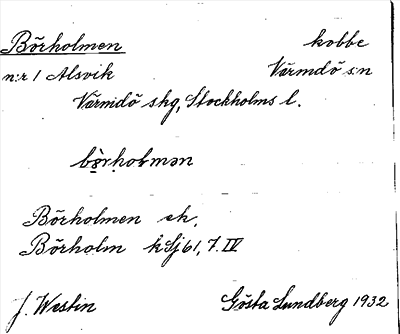 Börholmen kobbe
n:r 1 Alsvik Värmdö s:n
Värmdö skg, Stockholms l.
bö̀rhoƚmən
Börholmen ek.
Börholm kSj 61, 7. IV
J. Westin Gösta Lundberg 1932